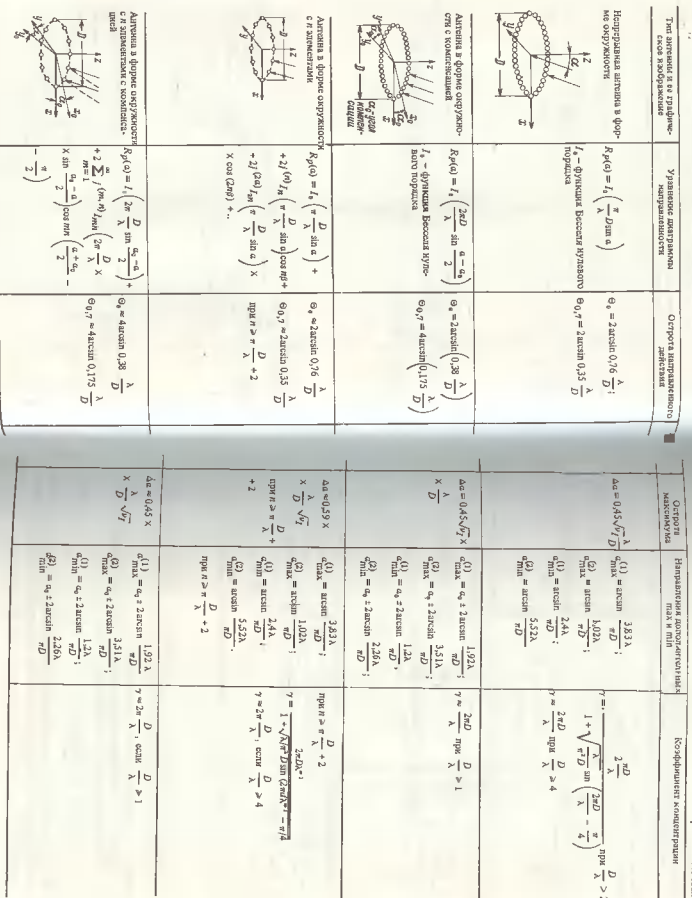 Тип антенны и ее графиче-
ское изображение
Уравнение диаграммы
направленности
Острота направленного
действия
Острота
максимума
Направления дополнительных
max и min
Коэффициент концентрации
Непрерывная антенна в фор-
ме окружности
R_P(α) = I_0 (π D/λ sin α)
I_0 – функция Бесселя нулевого
порядка
Θ_0 = 2arcsin 0,76 λ/D;
Θ_0,7 = 2arcsin 0,35 λ/D
Δα = 0,45√ν_I λ/D
α_max^(1) = arcsin 3,83λ/πD;
α_max^(2) = arcsin 7,02λ/πD;
α_min^(1) = arcsin 2,4λ/πD;
α_min^(2) = arcsin 5,52λ/πD
1 + √(λ/π²D) sin (2πD/λ − π/4)
γ ≈ 2πD/λ при D/λ ≥ 4
Антенна в форме окружно-
сти с компенсацией
α_0-угол
компен-
сации
R_P(α) = I_0 (2πD/λ sin (α − α_0)/2)
I_0 – функция Бесселя нуле-
вого порядка
Θ_0 = 2arcsin(0,38 λ/D);
Θ_0,7 = 4arcsin(0,175 λ/D)
Δα = 0,45√ν_I ×
× λ/D
α_max^(1) = α_0 ± 2arcsin 1,92λ/πD;
α_max^(2) = α_0 ± 2arcsin 3,51λ/πD;
α_min^(1) = α_0 ± 2arcsin 1,2λ/πD;
α_min^(2) = α_0 ± 2arcsin 2,26λ/πD;
γ ≈ 2πD/λ при D/λ ≥ 1
Антенна в форме окружности
с n элементами
R_P(α) = I_0 (π D/λ sin α) +
+ 2j^(n) I_n (π D/λ sin α) cos nβ +
+ 2j^(2n) I_2n (π D/λ sin α) ×
× cos (2nβ) + ..
Θ_0 ≈ 2arcsin 0,76 λ/D
Θ_0,7 ≈ 2arcsin 0,35 λ/D
при n ≥ π D/λ + 2
Δα ≈ 0,59 ×
× λ/D √ν_I
при n ≥ π D/λ +
+ 2
α_max^(1) = arcsin 3,83λ/πD;
α_max^(2) = arcsin 7,02λ/πD;
α_min^(1) = arcsin 2,4λ/πD;
α_min^(2) = arcsin 5,52λ/πD.
при n ≥ π D/λ + 2
при n ≥ π D/λ + 2
γ ≈ 2π D/λ, если D/λ ≥ 4
Антенна в форме окружности
с n элементами с компенса-
цией
R_P(α) = I_0 (2π D/λ sin (α_0 − α)/2) +
+ 2 Σ_m=1^∞ j^(m, n) I_mn (2π D/λ ×
× sin (α_0 − α)/2) cos mn ((α + α_0)/2 −
− π/2)
Θ_0 ≈ 4arcsin 0,38 λ/D
Θ_0,7 ≈ 4arcsin 0,175 λ/D
Δα ≈ 0,45 ×
× λ/D √ν_I
α_max^(1) = α_0 ± 2arcsin 1,92λ/πD;
α_max^(2) = α_0 ± 2arcsin 3,51λ/πD;
α_min^(1) = α_0 ± 2arcsin 1,2λ/πD;
α_min^(2) = α_0 ± 2arcsin 2,26λ/πD
γ ≈ 2π D/λ, если D/λ ≥ 1